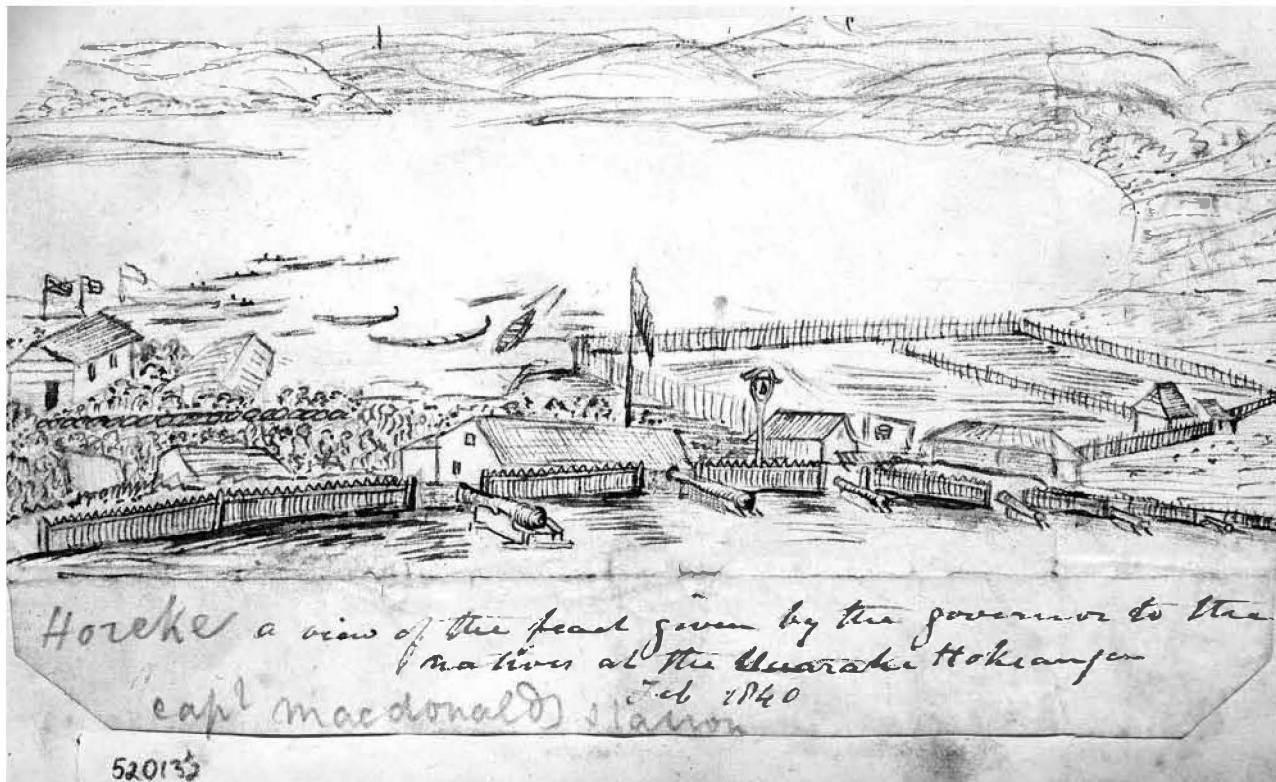 Horeke a view of the feast given by the governor to the
natives at the Huarake Hokianga
Feb 1840
capt macdonalds station
520135